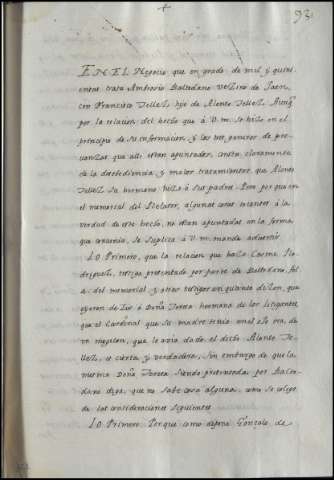 93
EN EL Negocio que en grado de mil y quini
entas trata Ambrosio Baltodano vezino de Jaen,
con Francisco Tellez hijo de Alonso Tellez, Aunq̃
por la relacion del hecho que à V. m. se hizo en el
principio de su informacion y las tres maneras de pro
uanzas que alli estan apuntadas, consta claramente
de la desobediencia y malos tratamientos que Alonso
Tellez su hermano hizo à sus padres. Pero por que en
el memorial del Relator, algunas cosas tocantes à la
verdad de este hecho, no estan apuntadas en la forma
que conuenia, Se suplica à V. m. mande aduertir
LO Primero, que la relacion que haze Cosme Ro
driguez, testigo presentado por parte de Baltodano fol
del memorial y otros testigos en quanto dizen, que
oyeron dezir à Doña Teresa hermana de los litigantes
que el Cardenal que su madre tenia en el ojo era, de
vn mogicon, que le auia dado el dicho Alonso Te
llez, es cierta y verdadera, Sin embargo de que la
misma Doña Teresa siendo presentada por Bal
todano diga, que no sabe cosa alguna, como se colige
de las consideraciones siguientes
LO Primero. Porque como depone Gonzalo de